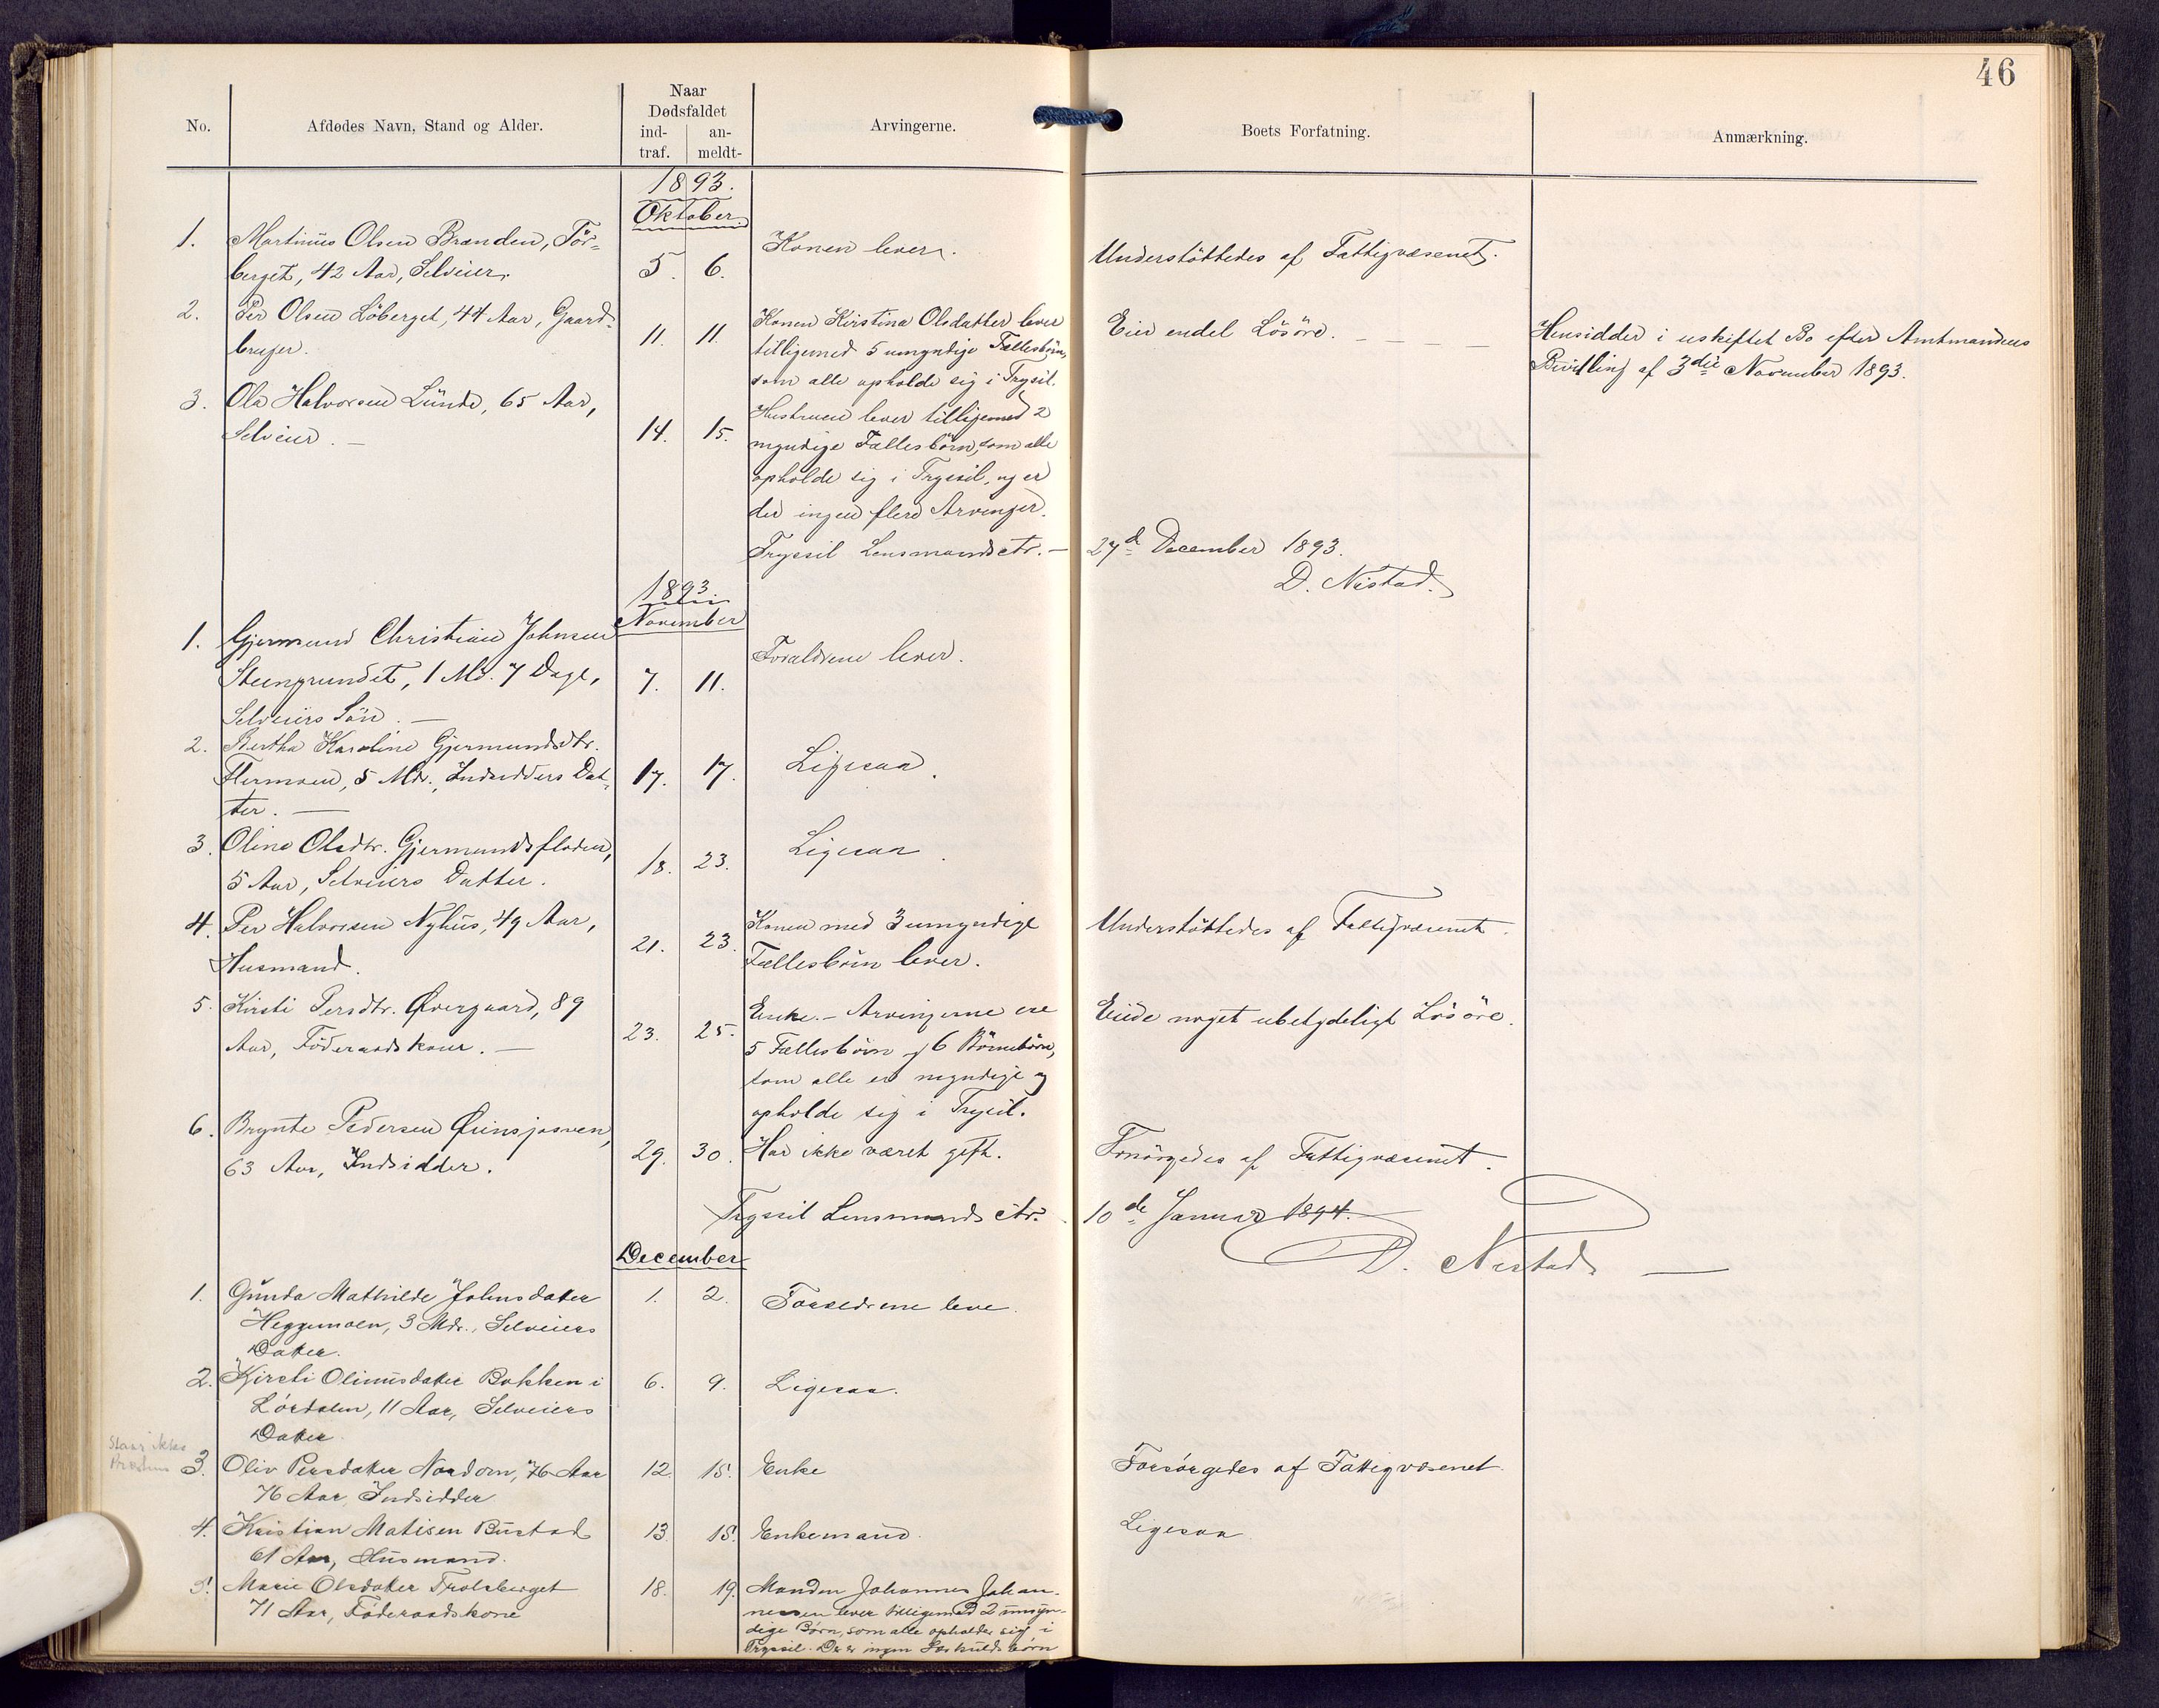 46
No.
Afdødes Navn, Stand og Alder.
Naar
Dødsfaldet
ind-
traf.
an-
meldt-
Arvingerne.
Boets Forfatning.
Anmærkning.
1893.
Oktober
1. Martinus Olsen Brænden, Tör-
berget, 42 Aar, Selveier.
5. 6.
Konen lever.
Understöttedes af Fattigvæsenet.
2. Per Olsen Löberget, 44 Aar, Gaard-
bruger.
11. 11.
Konen Kirstina Olsdatter lever
tilligemed 5 umyndige Fællesbörn,
som alle opholde sig i Trysil.
Eier endel Lösöre.
Hensidder i uskiftet Bo efter Amtmandens
Bevilling af 3die November 1893.
3. Ole Halvorsen Lunde, 65 Aar,
Selveier. —
14. 15.
Hustruen lever tilligemed 2
myndige Fællesbörn, som alle
opholde sig i Tryssil, og er
der ingen flere Arvinger.
Tryssil Lensmandsctr. — 27de December 1893.
D. Nestad.
1893
November
1. Gjermund Christian Johnsen
Steengrundet, 1 Md. 7 Dage,
Selveiers Sön. —
7. 11.
Forældrene lever.
2. Bertha Karoline Gjermundsdtr.
Flermoen, 5 Mdr., Indsidders Dat-
ter. —
17. 17.
Ligesaa.
3. Oline Olsdtr. Gjermundsfloden,
5 Aar, Selveiers Datter.
18. 23.
Ligesaa.
4. Per Halvorsen Nyhus, 49 Aar,
Husmand.
21. 23.
Konen med 3 umyndige
Fællesbörn lever.
Understöttedes af Fattigvæsenet.
5. Kirsti Persdtr. Øvergaard, 89
Aar, Föderaadskone. —
23. 25.
Enke. — Arvingerne ere
5 Fællesbörn og 6 Börnebörn,
som alle er myndige og
opholde sig i Trysil.
Eiede noget ubetydeligt Lösöre.
6. Brynte Pedersen
63 Aar, Indsidder.
29. 30.
Har ikke været gift.
Forsörgedes af Fattigvæsenet.
Tryssil Lensmandsctr. 10de Januar 1894.
D. Nestad
December
1. Gunda Mathilde Johnsdatter
Heggemoen, 3 Mdr., Selveiers
Datter.
1. 2.
Forældrene leve.
2. Kirsti Olinusdatter Bakken i
Lördalen, 11 Aar, Selveiers
Datter
6. 9.
Ligesaa.
Staar ikke
3. Oliv Persdatter Nordom, 76 Aar
76 Aar, Indsidder
12. 15.
Enke
Forsörgedes af Fattigvæsenet
4. Kristian Matisen Bustad
61 Aar, Husmand.
13. 15.
Enkemand.
Ligesaa
5. Marie Olsdatter Trolsberget
71 Aar, Föderaadskone
18. 19.
Manden Johannes Johan-
nessen lever tilligemed 2 umyn-
dige Børn, som alle opholder sig i
Tryssil. Der er ingen Særkuldsbörn